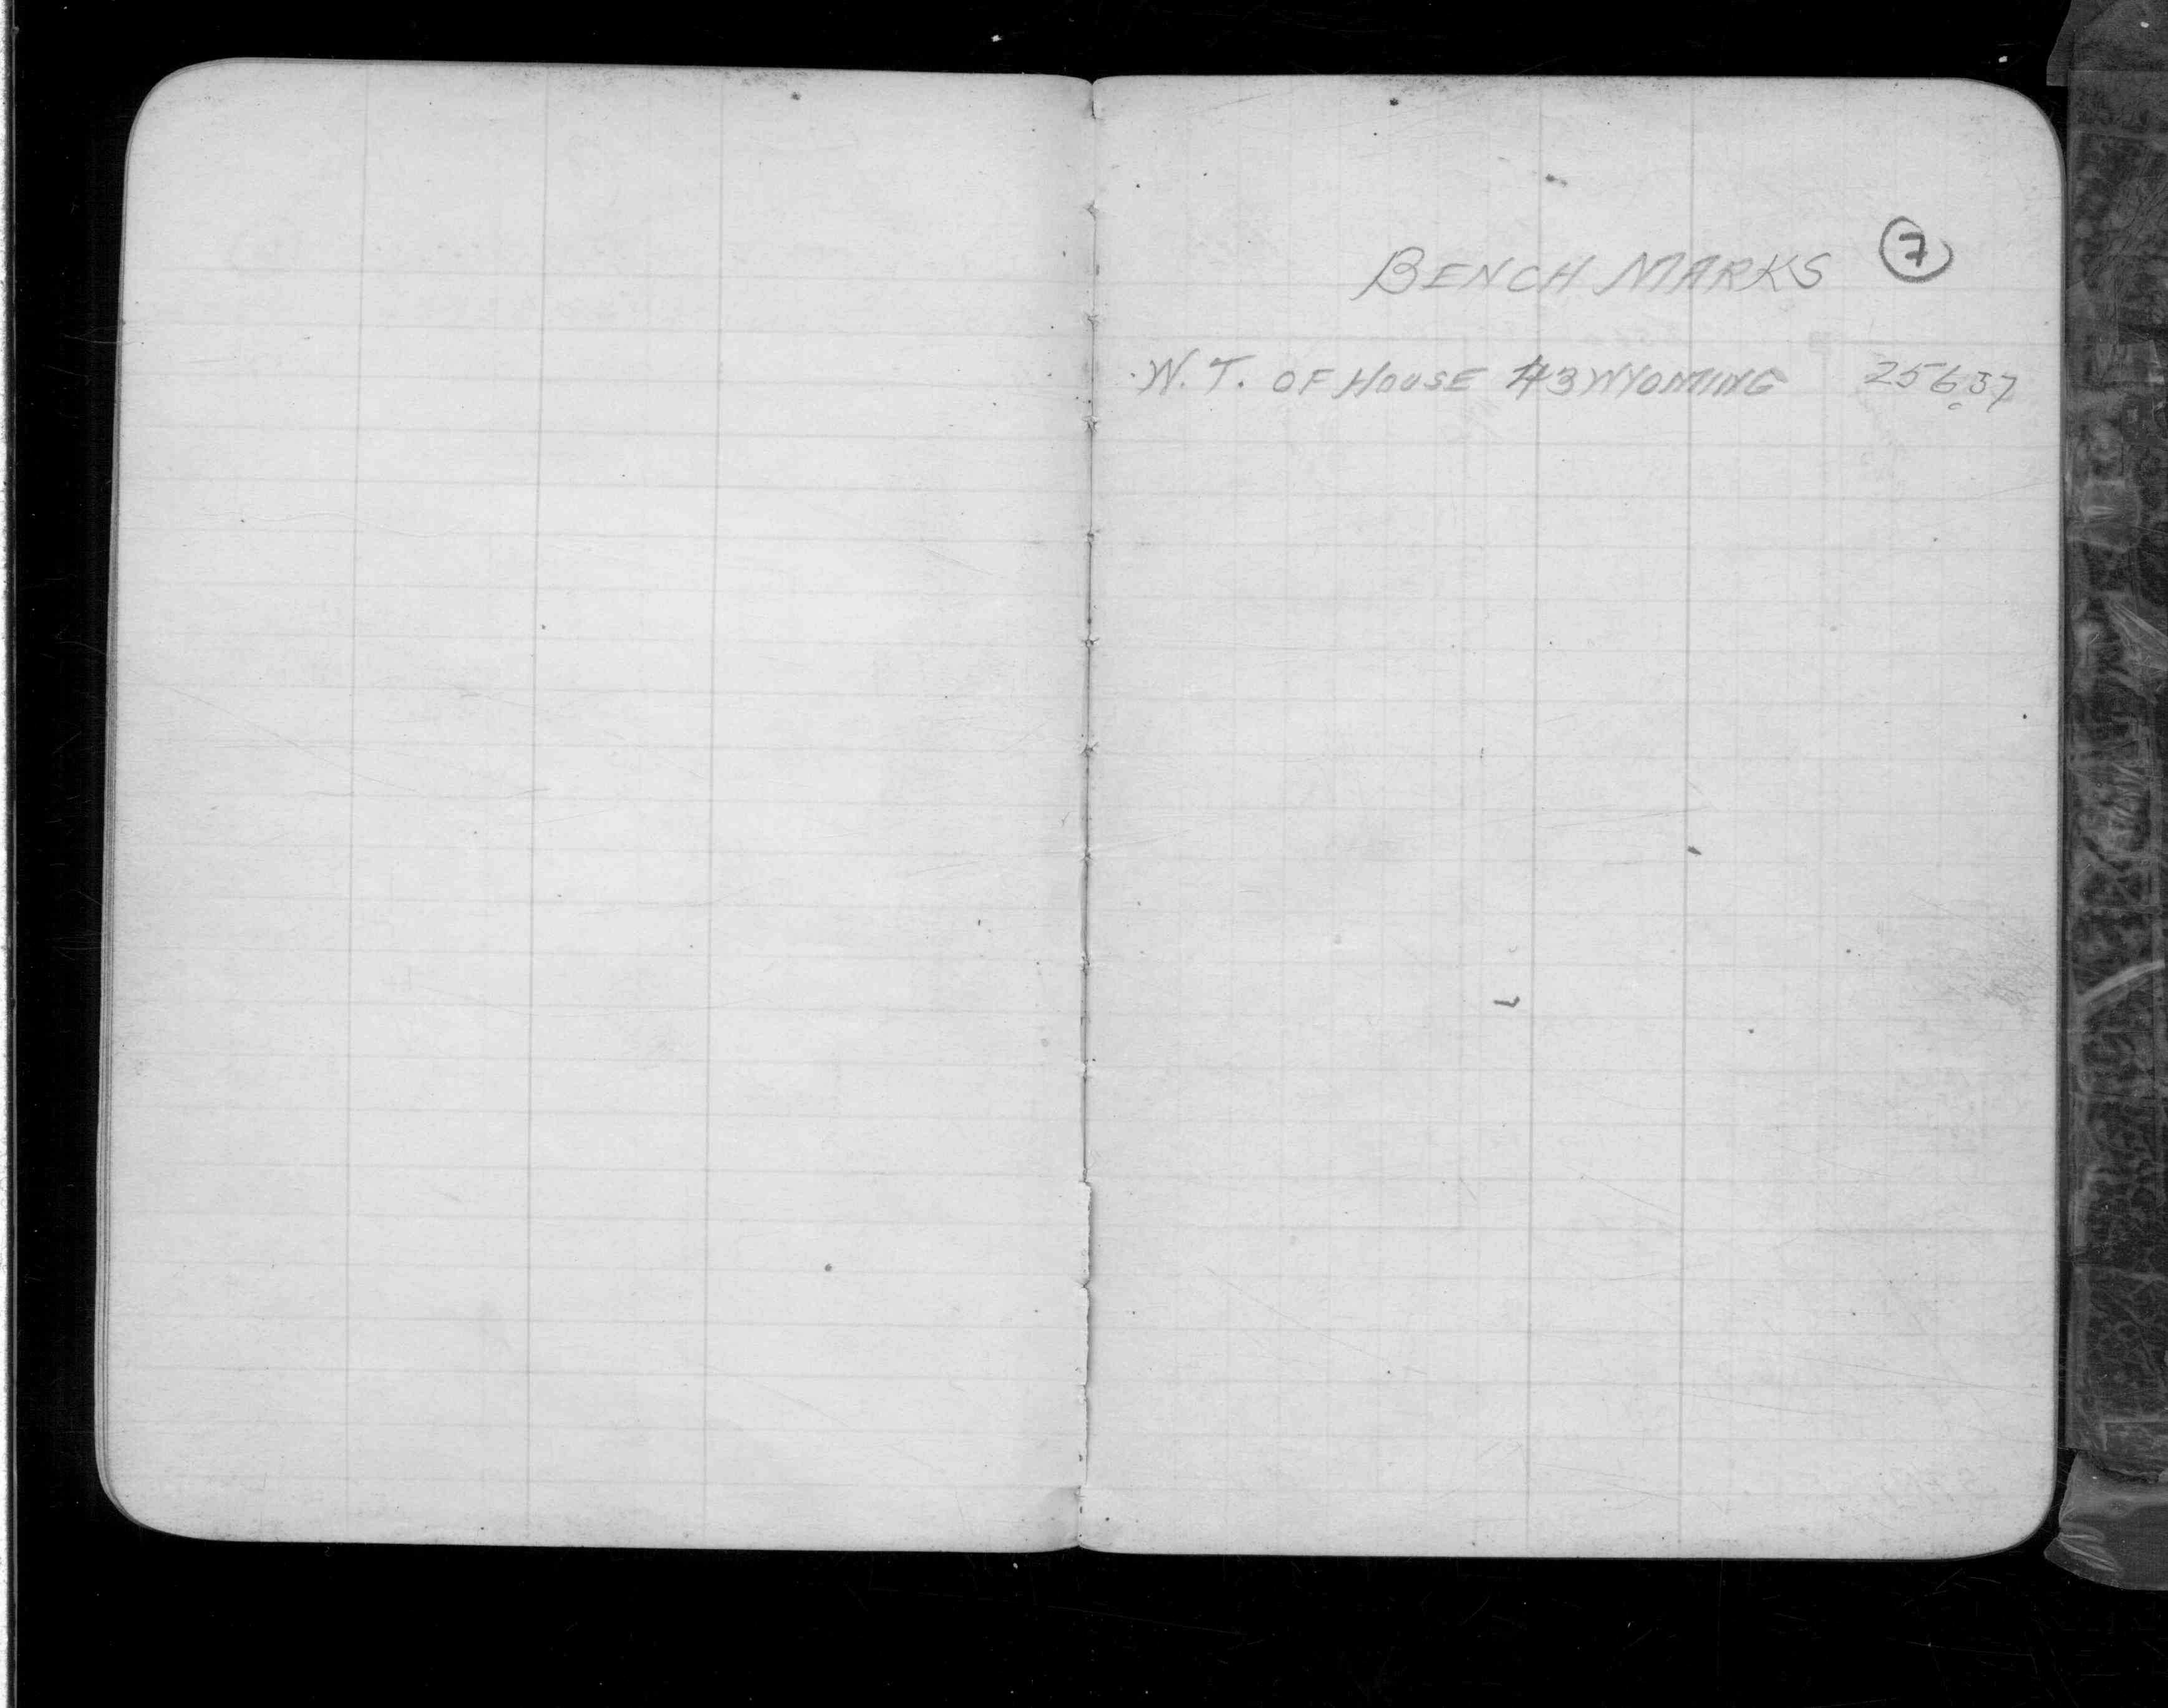 BENCH MARKS 7
W.T. OF HOUSE #3 WYOMING 256.37